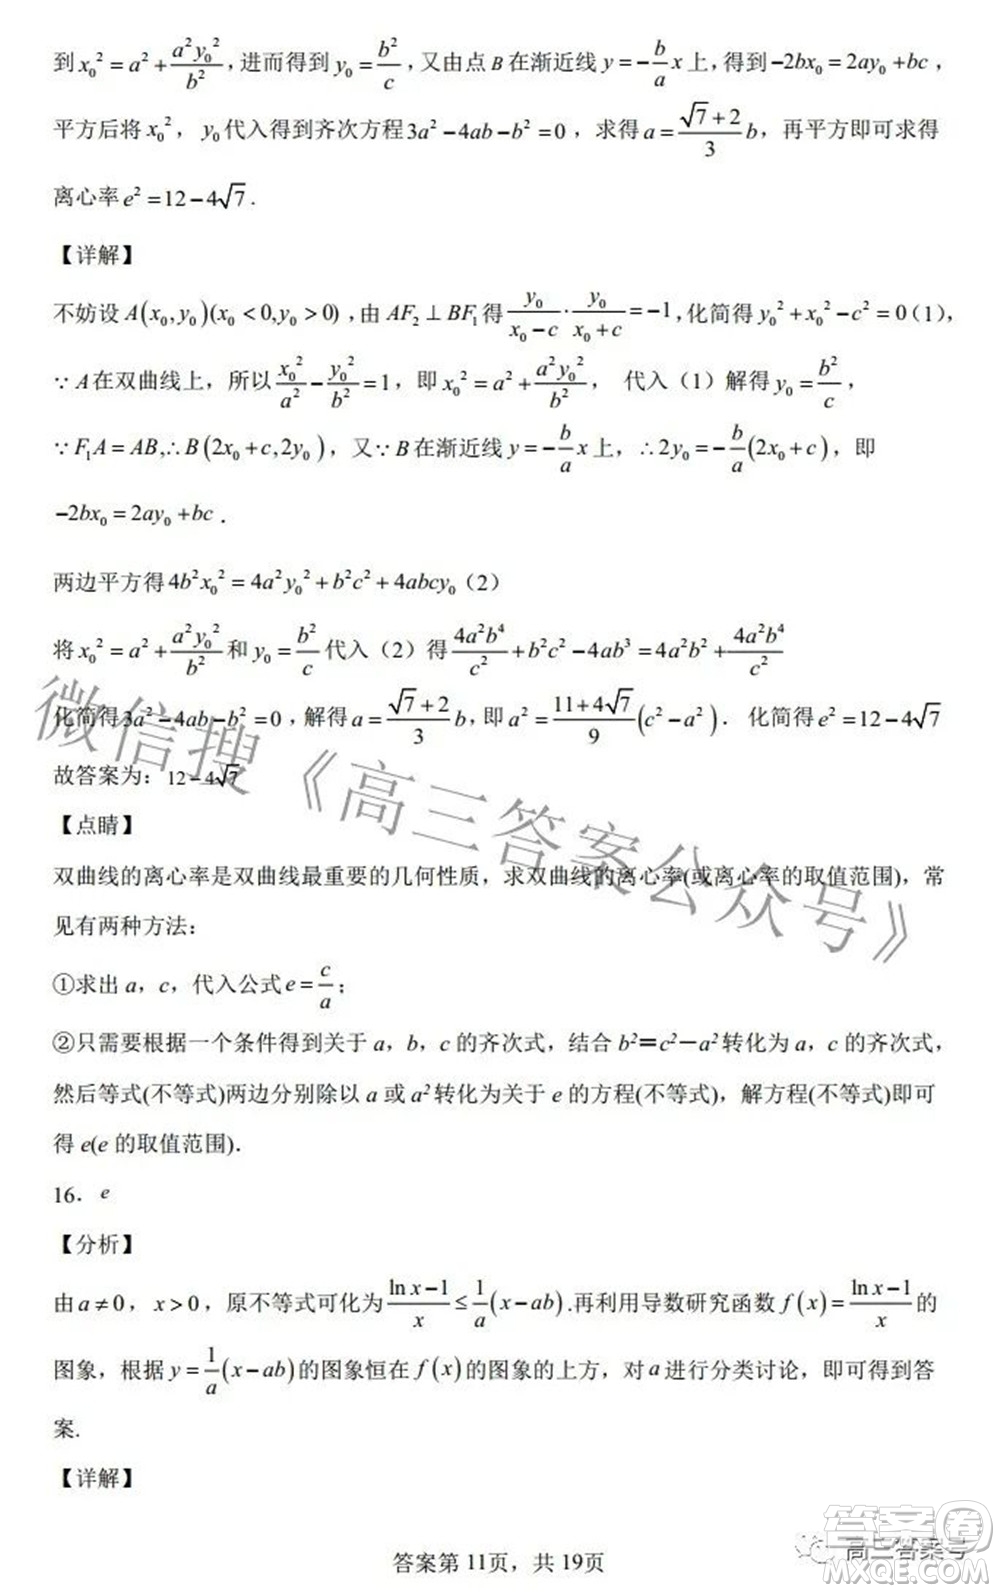 到 x₀² = a² + a²y₀²/b²，进而得到 y₀ = b²/c，又由点 B 在渐近线 y = −(b/a)x 上，得到 −2bx₀ = 2ay₀ + bc，
平方后将 x₀²，y₀代入得到齐次方程 3a² − 4ab − b² = 0，求得 a = (√7 + 2)/3 b，再平方即可求得
离心率 e² = 12 − 4√7．
【详解】
不妨设 A(x₀, y₀)(x₀ < 0, y₀ > 0)，由 AF₂ ⊥ BF₁ 得 y₀/(x₀ − c) · y₀/(x₀ + c) = −1，化简得 y₀² + x₀² − c² = 0（1），
∵ A 在双曲线上，所以 x₀²/a² − y₀²/b² = 1，即 x₀² = a² + a²y₀²/b²， 代入（1）解得 y₀ = b²/c，
∵ F₁A = AB, ∴ B(2x₀ + c, 2y₀)，又∵ B 在渐近线 y = −(b/a)x 上，∴ 2y₀ = −(b/a)(2x₀ + c)，即
−2bx₀ = 2ay₀ + bc．
两边平方得 4b²x₀² = 4a²y₀² + b²c² + 4abcy₀（2）
将 x₀² = a² + a²y₀²/b² 和 y₀ = b²/c 代入（2）得 4a²b⁴/c² + b²c² − 4ab³ = 4a²b² + 4a²b⁴/c²
化简得 3a² − 4ab − b² = 0，解得 a = (√7 + 2)/3 b，即 a² = (11 + 4√7)/9 (c² − a²)． 化简得 e² = 12 − 4√7
故答案为：12 − 4√7
【点睛】
双曲线的离心率是双曲线最重要的几何性质，求双曲线的离心率(或离心率的取值范围)，常
见有两种方法：
①求出 a，c，代入公式 e = c/a；
②只需要根据一个条件得到关于 a，b，c 的齐次式，结合 b²＝c²－a² 转化为 a，c 的齐次式，
然后等式(不等式)两边分别除以 a 或 a² 转化为关于 e 的方程(不等式)，解方程(不等式)即可
得 e(e 的取值范围)．
16． e
【分析】
由 a ≠ 0，x > 0，原不等式可化为 (ln x − 1)/x ≤ (1/a)(x − ab).再利用导数研究函数 f(x) = (ln x − 1)/x 的
图象，根据 y = (1/a)(x − ab) 的图象恒在 f(x) 的图象的上方，对 a 进行分类讨论，即可得到答
案.
【详解】
微信搜《高三答案公众号》
答案第 11页，共 19页
高三答案号
答案圈
MXQE.COM